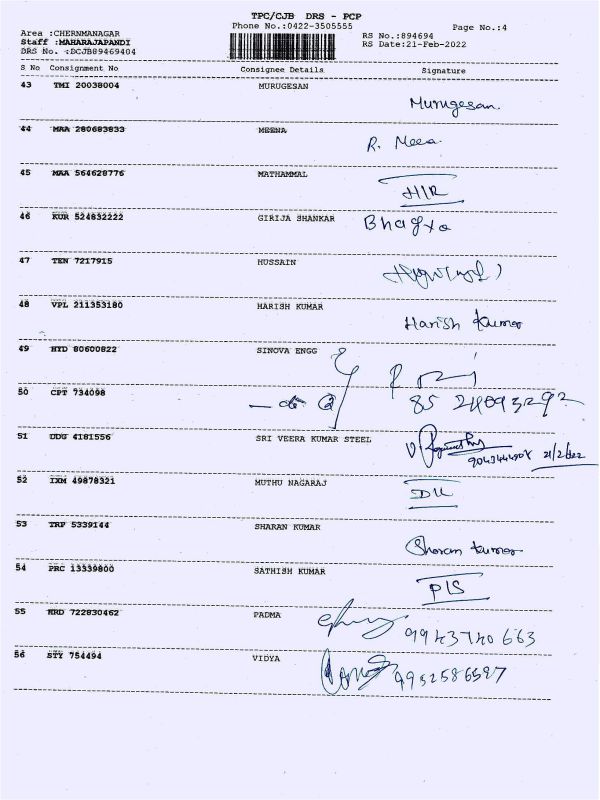 TPC/CJB DRS - PCP
Phone No.:0422-3505555 Page No.:4
Area :CHERNMANAGAR RS No.:894694
Staff :MAHARAJAPANDI RS Date:21-Feb-2022
DRS No. :DCJB89469404
S No Consignment No Consignee Details Signature
43 TMI 20038004 MURUGESAN Murugesan.
44 MAA 280683833 MEENA R. Meea.
45 MAA 564628776 MATHAMMAL HIR
46 KUR 524832222 GIRIJA SHANKAR Bhagya
47 TEN 7217915 HUSSAIN
48 VPL 211353180 HARISH KUMAR Harish kumar
49 HYD 80600822 SINOVA ENGG
50 CPT 734098 85 24093292
51 DDG 4181556 SRI VEERA KUMAR STEEL
21/2/022
52 IXM 49878321 MUTHU NAGARAJ DU
53 TRP 5339144 SHARAN KUMAR Sharan kumar
54 PRC 13339800 SATHISH KUMAR PIS
55 HRD 722830462 PADMA 9943740663
56 STY 754494 VIDYA 9952586587